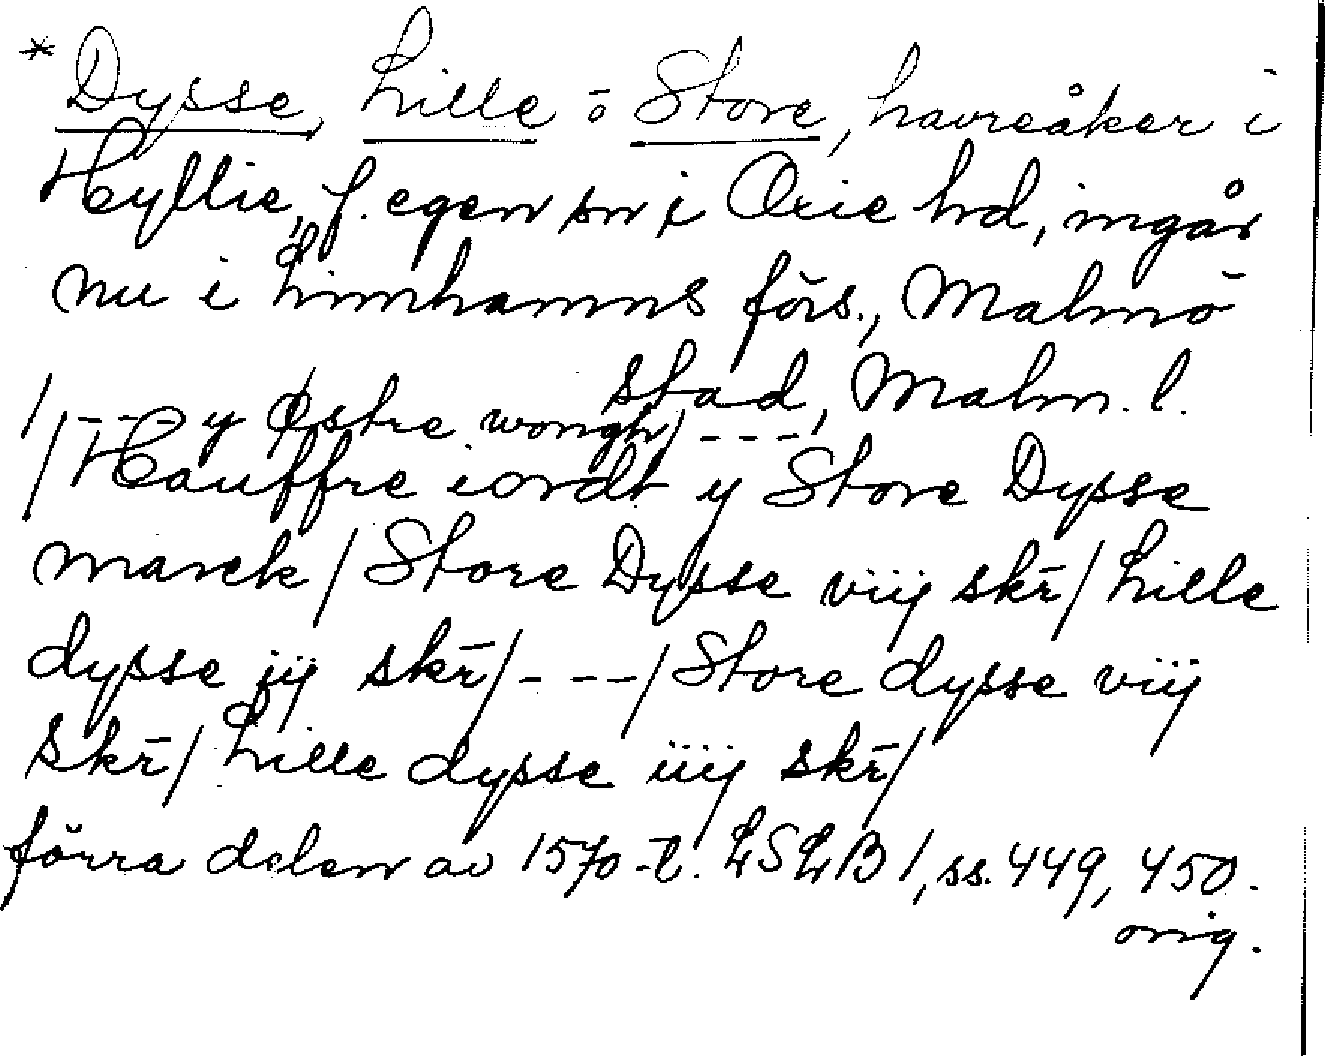 * Dysse, Lille o Store, havreåker i
Hyllie, f. egen sn i Oxie hd, ingår
nu i Limhamns förs., Malmö
stad, Malm. l.
/ - - - y Østre wongh / - - - /
/ Hauffre iordt y Store Dysse
marck / Store Dysse viij skr̄ / Lille
dysse iij skr̄ / - - - / Store dysse viij
skr̄ / Lille dysse iiij skr̄ /
förra delen av 1570-t. LSLB 1, ss. 449, 450.
orig.